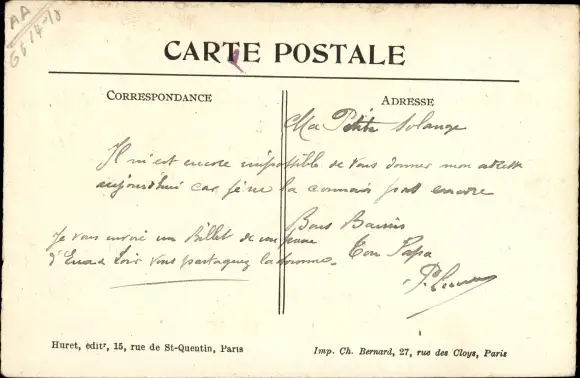 AA
6614-18
CARTE POSTALE
CORRESPONDANCE
ADRESSE
Ma Petite Solange
Il m'est encore impossible de vous donner mon adresse
aujourd'hui car je ne la connais pas encore
Je vous envoie un billet de un franc
d'Eure & Loir vous partagerez la somme.
Bons Baisers
Ton Papa
Huret, édit<sup>r</sup>, 15, rue de St-Quentin, Paris
Imp. Ch. Bernard, 27, rue des Cloys, Paris